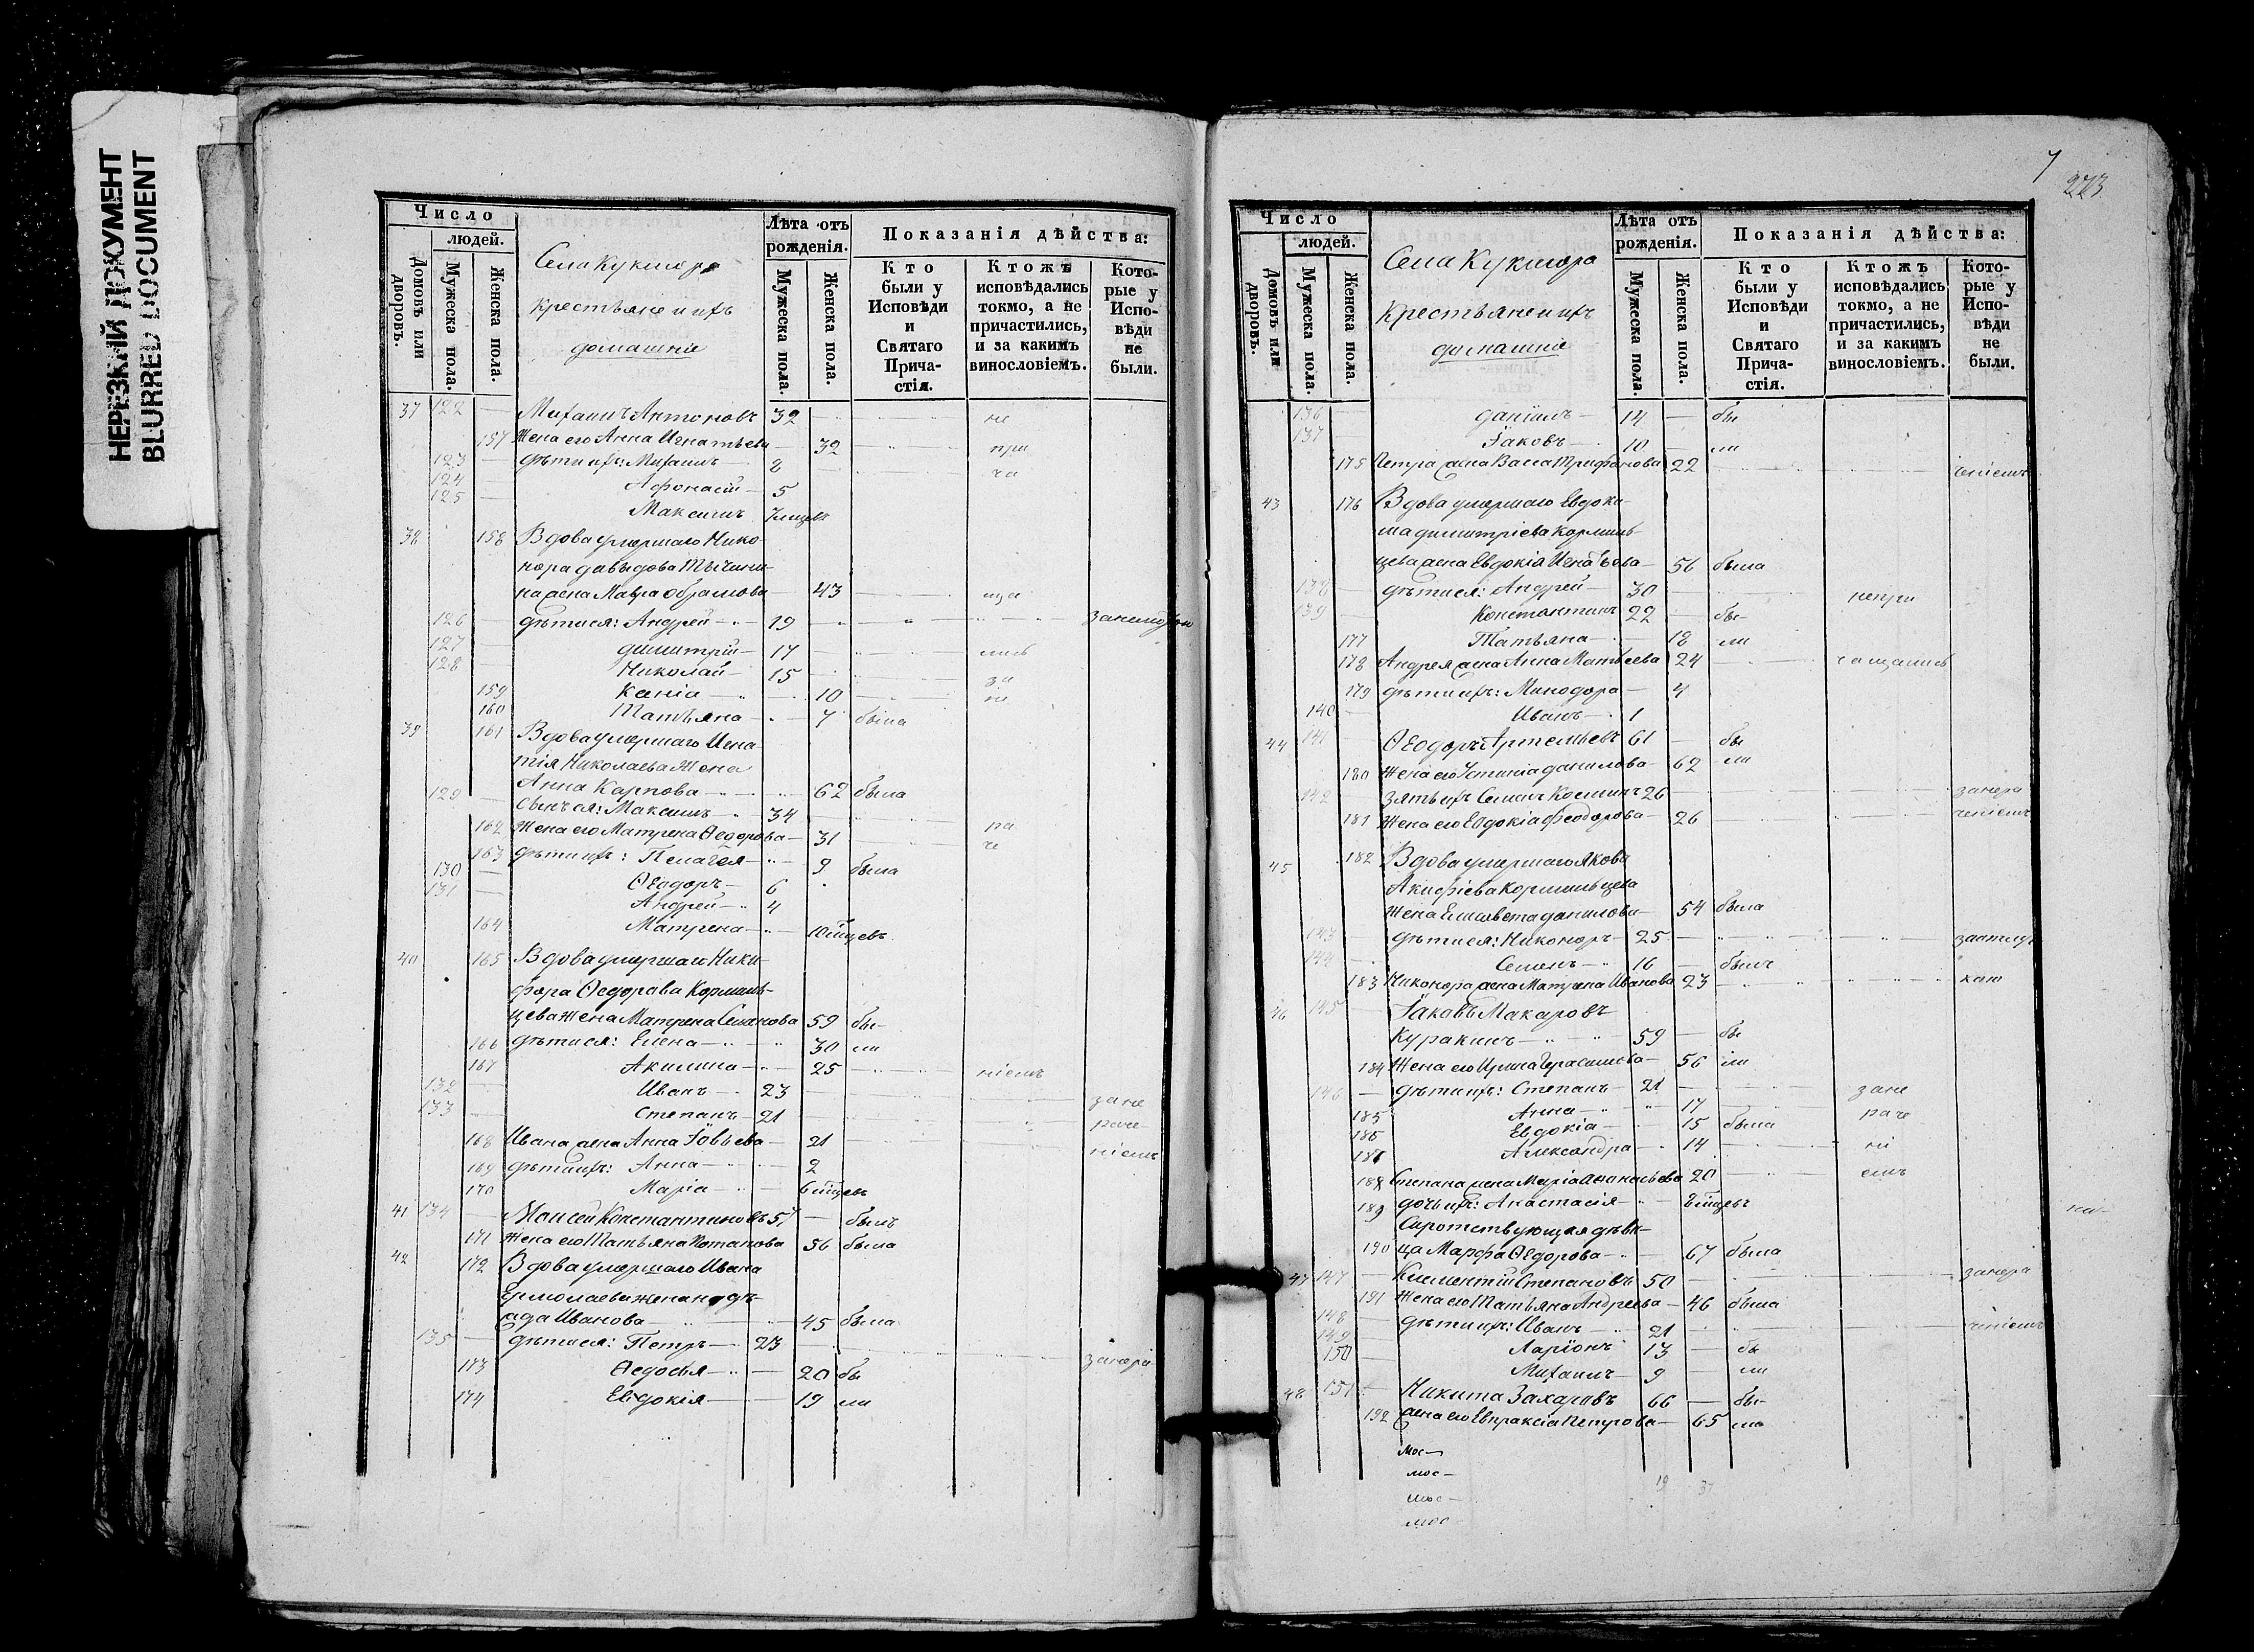 НЕРЕЗКИЙ ДОКУМЕНТ
BLURRED DOCUMENT
Число
людей.
Домовъ или дворовъ.
Мужеска пола.
Женска пола.
Села Кукмора
крестьяне и ихъ
домашніе
Лѣта отъ рожденія.
Мужеска пола.
Женска пола.
Показанія дѣйства:
Кто были у Исповѣди и Святаго Причастія.
Ктожъ исповѣдались токмо, а не причастились, и за какимъ винословіемъ.
Которые у Исповѣди не были.
37 122 — Михаилъ Антоновъ 32 не
157 Жена его Анна Игнатьева — 32 при
123 — дѣти ихъ: Михаилъ — 8 ча
124 — Афонасій — 5
125 — Максимъ 7 мцевъ
38 158 Вдова умершаго Нико-
нора Давыдова
на жена Мавра Обрамова — 43 ща
126 — дѣти ея: Андрей — 19
127 — Димитрій — 17 лись
128 — Николай — 15 за
159 Ксенія — 10 не
160 Татьяна — 7 была
39 161 Вдова умершаго Игна-
тія Николаева жена
Анна Карпова — 62 была
129 — сынъ ея: Максимъ — 34
162 Жена его Матрена Ѳедорова — 31 ра
163 дѣти ихъ: Пелагея — 9 была че
130 — Ѳеодоръ — 6
131 — Андрей — 4
164 Матрена — 10 мцевъ
40 165 Вдова умершаго Ники-
фора Ѳедорова Кормиль-
цева жена Матрена Семенова 59 бы-
166 дѣти ея: Елена — 30 ли
167 Акилина — 25 ніемъ
132 — Иванъ — 23 — зане
133 — Степанъ — 21 — раче
168 Ивана жена Анна Іовлева — 21 ніемъ
169 дѣти ихъ: Анна — 2
170 Марія — 6 мцевъ
41 134 — Моисей Константиновъ 57 — былъ
171 Жена его Татьяна Потапова 56 была
42 172 Вдова умершаго Ивана
Ермолаева жена
Иванова — 45 была
135 — дѣти ея: Петръ — 23 — занера
173 Ѳедосья — 20 бы
174 Евдокія — 19 ли
7
273
Число
людей.
Домовъ или дворовъ.
Мужеска пола.
Женска пола.
Села Кукмора
крестьяне и ихъ
домашніе
Лѣта отъ рожденія.
Мужеска пола.
Женска пола.
Показанія дѣйства:
Кто были у Исповѣди и Святаго Причастія.
Ктожъ исповѣдались токмо, а не причастились, и за какимъ винословіемъ.
Которые у Исповѣди не были.
136 Даніилъ — 14 — бы
137 — Іаковъ — 10 — ли
175 Петра жена Васса Трифонова 22 ченіемъ
43 176 Вдова умершаго Евдоки-
ма Димитріева Кормиль-
цева жена Евдокія Игнатьева — 56 была
138 дѣти ея: Андрей — 30 непри
139 — Константинъ 22 — бы-
177 Татьяна — 18 ли
178 Андрея жена Анна Матвѣева 24 — чащались
179 дѣти ихъ: Минодора — 4
140 — Иванъ — 1
44 141 — Ѳеодоръ Артемьевъ 61 — бы
180 Жена его Устинія Данилова — 62 ли
142 Зять ихъ Семенъ Козминъ 26 — занера
181 Жена его Евдокія Феодорова — 26 ченіемъ
45 182 Вдова умершаго Якова
Акифіева Кормильцева
жена Елисавета Данилова — 54 была
143 дѣти ея: Никоноръ — 25 —
144 — Семенъ — 16 — былъ
183 Никонора жена Матрена Иванова 23 —
46 145 — Іаковъ Макаровъ
Куракинъ — 59 — бы
184 Жена его Ирина Герасимова — 56 ли
146 — дѣти ихъ: Степанъ — 21 — зане
185 Анна — 17 — раче
186 Евдокія — 15 была
187 Александра — 14 — ні
188 Степана жена Марія Аѳанасьева 20 — емъ
189 дочь ихъ: Анастасія — мцевъ
Сиротствующая дѣви-
190 ца Марфа Ѳедорова — 67 была
47 147 — Климентій Степановъ 50 — занера
191 Жена его Татьяна Андреева — 46 была
148 — дѣти ихъ: Иванъ — 21 ченіемъ
149 — Ларіонъ 13 — бы
150 — Михаилъ — 9 — ли
48 151 — Никита Захаровъ 66 — бы-
192 жена его Евпраксія Петрова — 65 ли
19 37